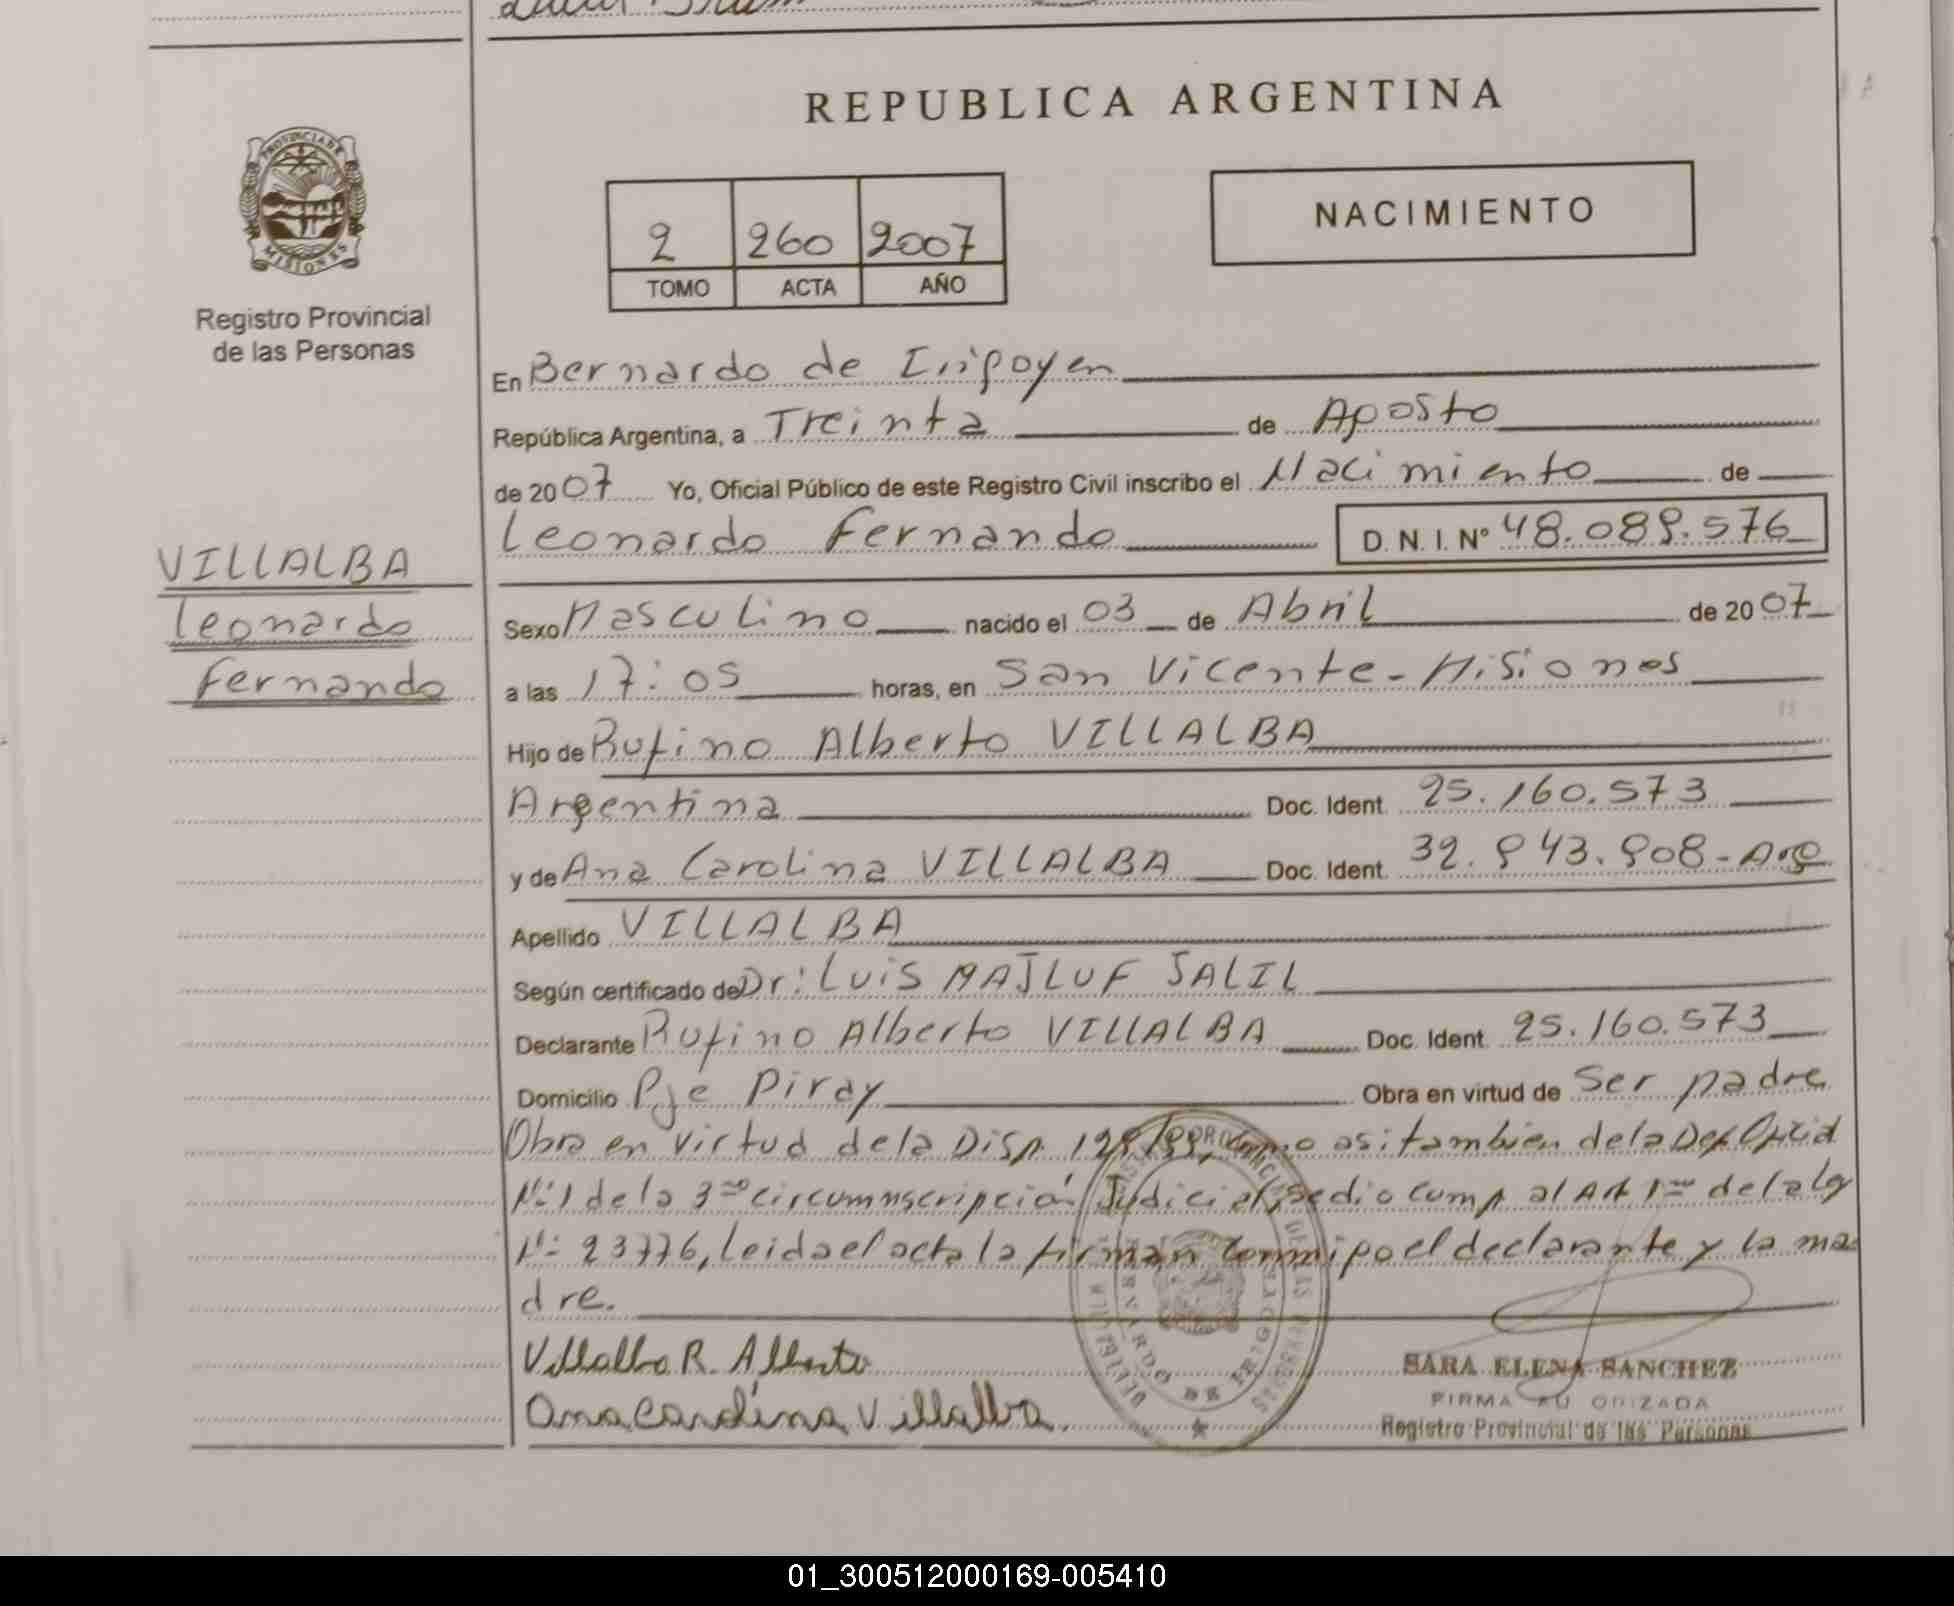 REPUBLICA ARGENTINA
PROVINCIA DE
MISIONES
Registro Provincial
de las Personas
2 260 2007
TOMO ACTA AÑO
NACIMIENTO
En Bernardo de Irigoyen
República Argentina, a Treinta de Agosto
de 2007 Yo, Oficial Público de este Registro Civil inscribo el Nacimiento de
Leonardo Fernando D. N. I. Nº 48.089.576
VILLALBA
Leonardo
Fernando
Sexo Masculino nacido el 03 de Abril de 2007
a las 17:05 horas, en San Vicente - Misiones
Hijo de Rufino Alberto VILLALBA
Argentina Doc. Ident. 25.160.573
y de Ana Carolina VILLALBA Doc. Ident. 32.943.908 - Arg
Apellido VILLALBA
Según certificado de Dr: Luis MAJLUF JALIL
Declarante Rufino Alberto VILLALBA Doc. Ident. 25.160.573
Domicilio Pje Piray Obra en virtud de Ser padre
Obra en virtud de la Disp. como asi tambien de la Def. Oficial
Nº 1 de la 3ra circumnscripción Judicial, se dio cump. al Art 1ro de la ley
Nº 23776, Leida el acta la firman conmigo el declarante y la ma
dre.
Villalba R. Alberto
Ana Carolina Villalba.
SARA ELENA SANCHEZ
FIRMA AUTORIZADA
Registro Provincial de las Personas
BERNARDO DE IRIGOYEN
01_300512000169-005410